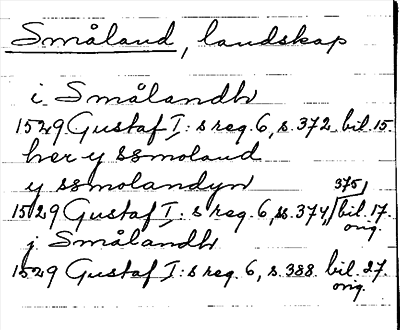 Småland, landskap
i Smålandh
1529 Gustaf I:s reg. 6, s. 372 bil. 15.
her y ssmoland
y ssmolandyn
1529 Gustaf I:s reg. 6, ss. 374, 375, bil. 17. orig.
j Smålandh
1529 Gustaf I:s reg. 6, s. 388 bil. 27. orig.